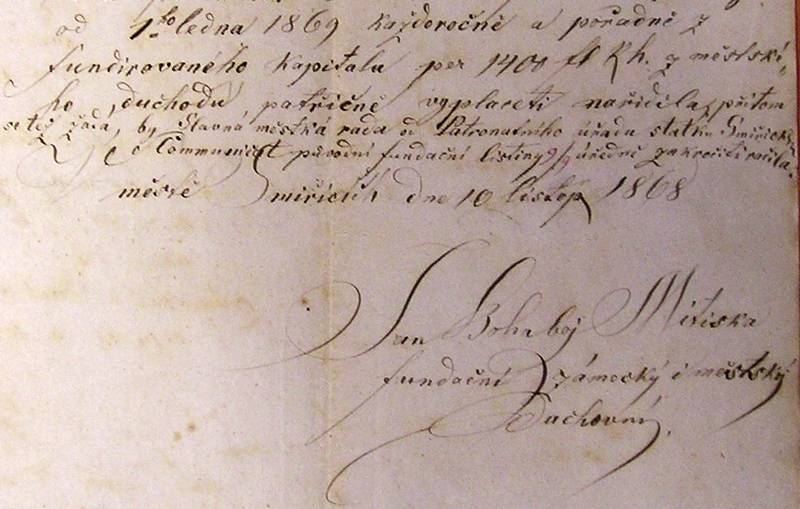 od 1ho ledna 1869 každoročně a pořadně z
fundirovaného kapitalu per 1400 fl Rh. z městské-
ho důchodu patřičně vyplaceti nařídila, přitom
se též žádá, by Slavná městská rada od Patronatního úřadu statku Smiřického
původní fundační listiny úředně zakročiti ráčila.
městě Smiřicích dne 10 listop 1868
Jan Bohaboj Mitiska
fundační zámecký i městský
Duchovní.